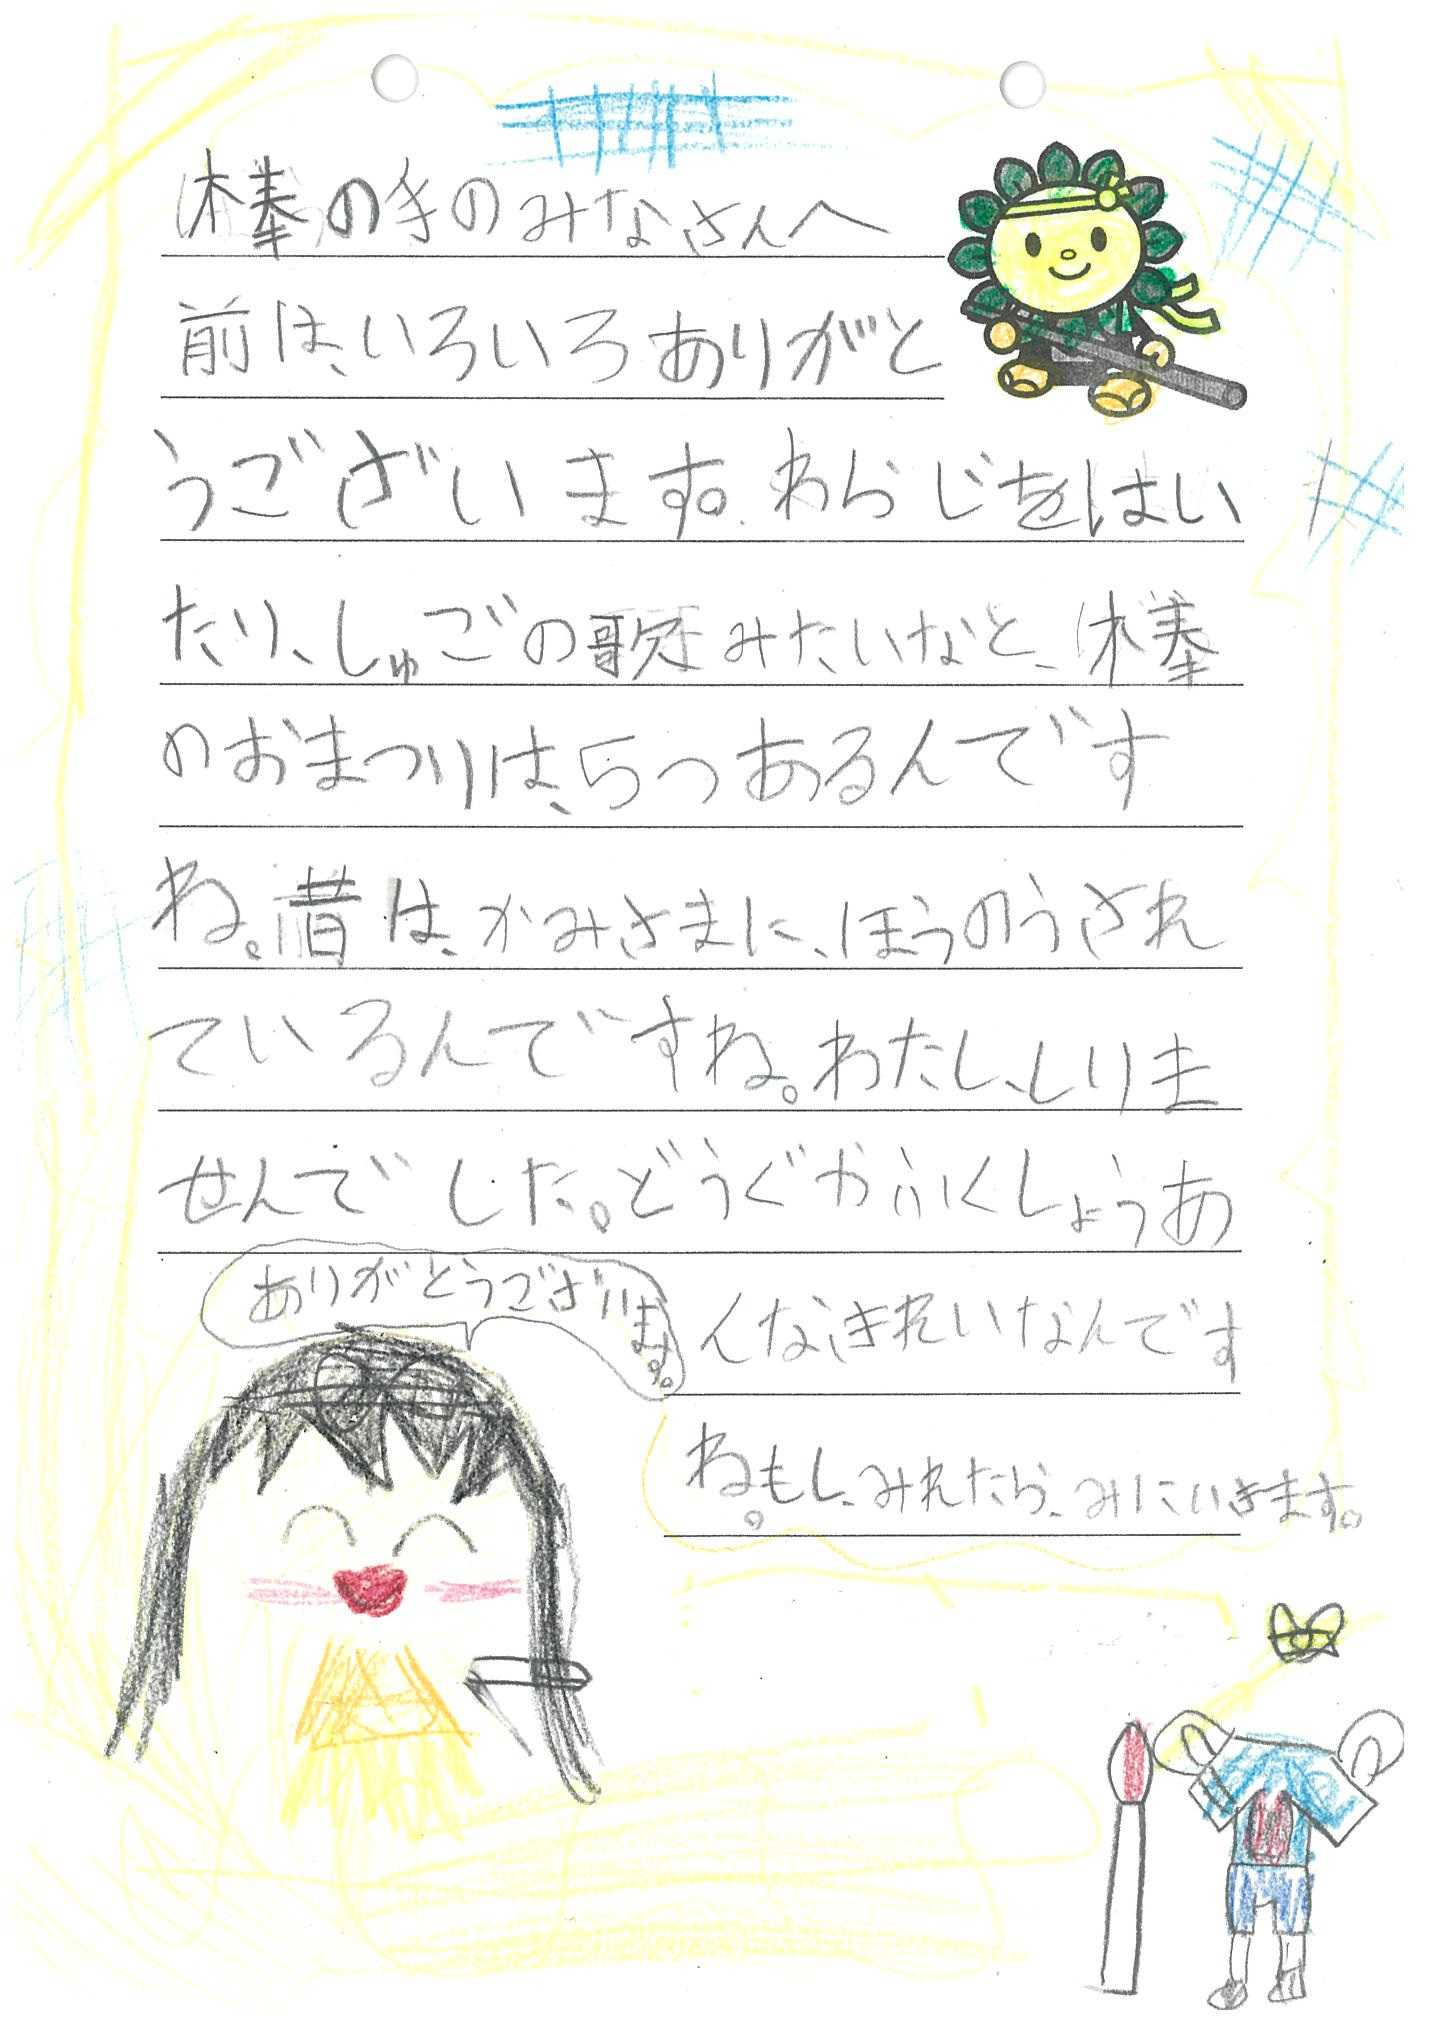 棒の手のみなさんへ
前は、いろいろありがと
うございます。わらじをはい
たり、しゅごの歌みたいなと、棒
のおまつりは、5つあるんです
ね。昔は、かみさまに、ほうのうされ
ているんですね。わたし、しりま
せんでした。どうぐやふくしょうあ
んなきれいなんです
ね。もし、みれたら、みにいきます。
ありがとうございます。